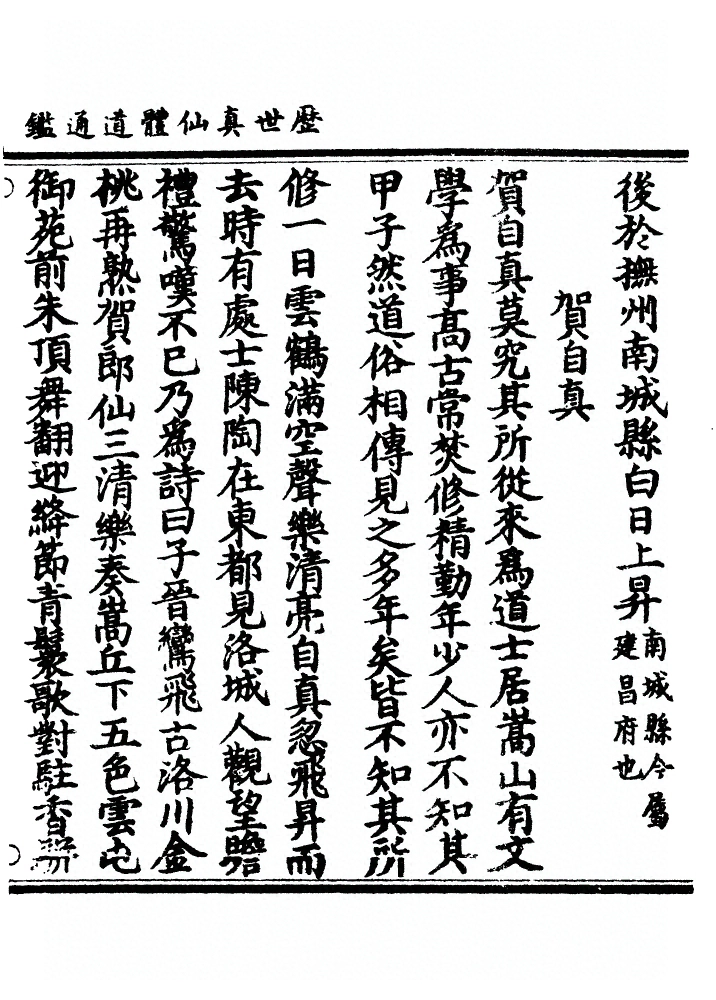 歷世真仙體道通鑑
後於撫州南城縣白日上昇南城縣今屬建昌府也
賀自真
賀自真莫究其所從來爲道士居嵩山有文
學爲事高古常焚修精勤年少人亦不知其
甲子然道俗相傳見之多年矣皆不知其所
修一日雲鶴滿空聲樂清亮自真忽飛昇而
去時有處士陳陶在東都見洛城人觀望瞻
禮驚嘆不已乃爲詩曰子晉鸞飛古洛川金
桃再熟賀郎仙三清樂奏嵩丘下五色雲屯
御苑前朱頂舞翻迎絳節青鬟歌對駐香